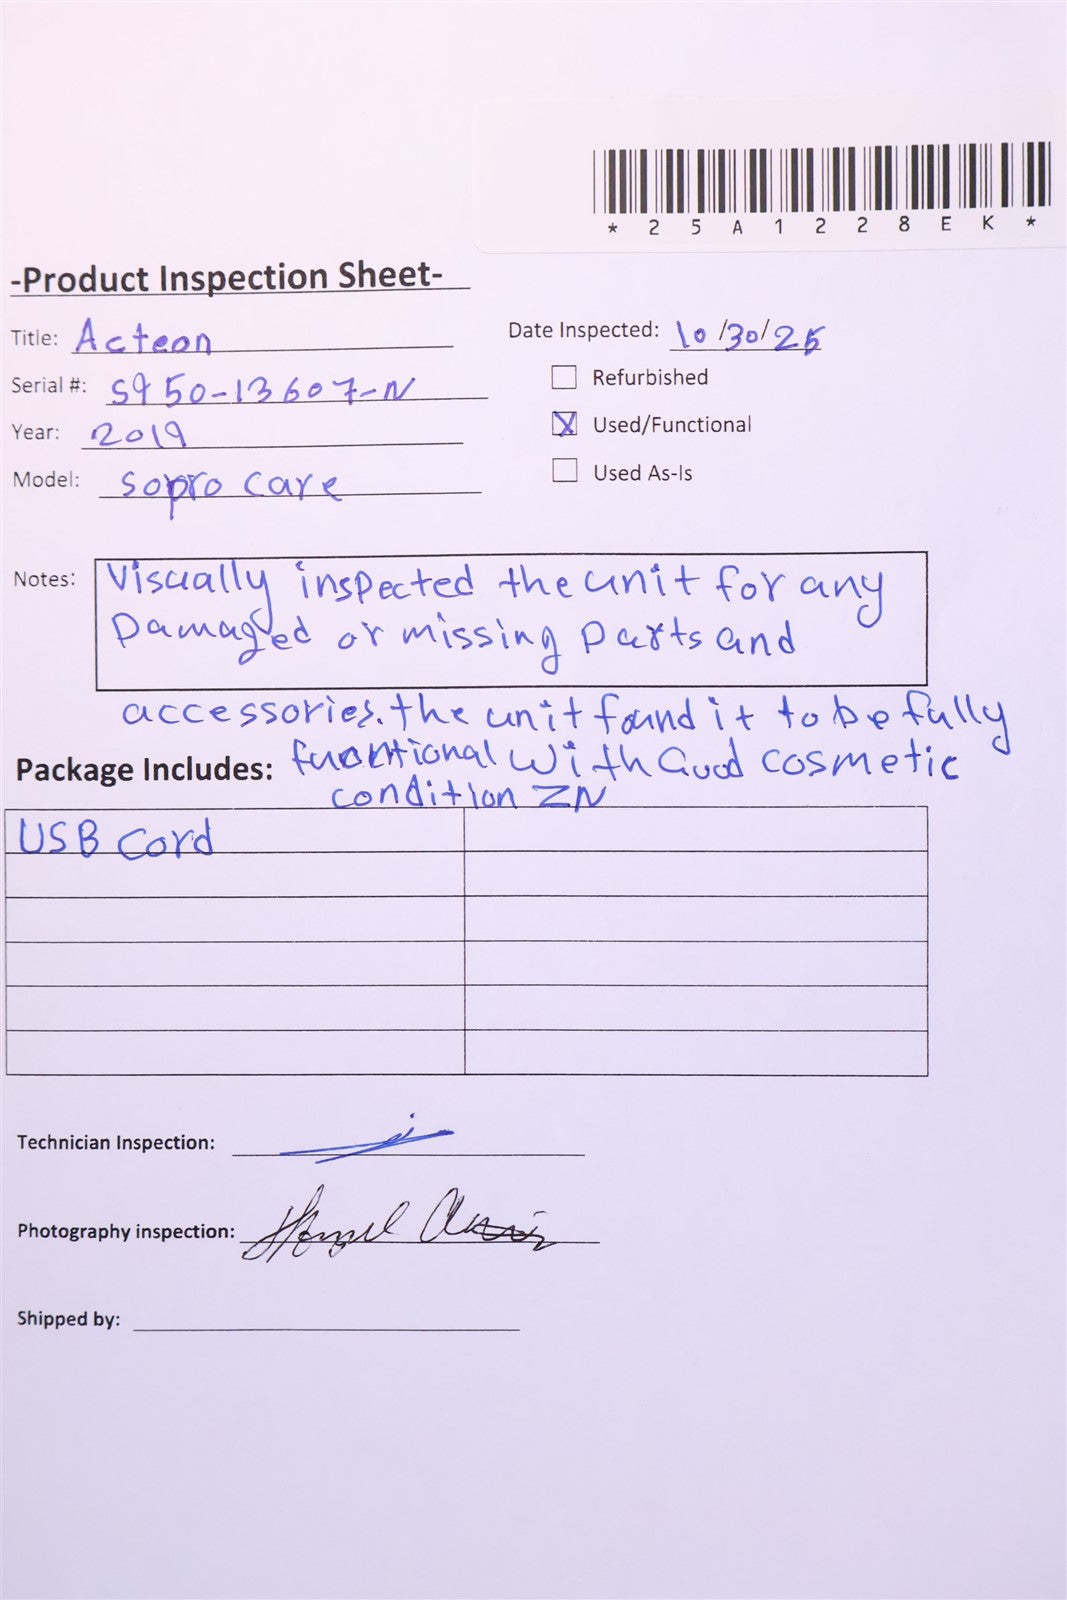 * 2 5 A 1 2 2 8 E K *
-Product Inspection Sheet-
Title: Acteon
Date Inspected: 10/30/25
Serial #: S950-13607-N
Refurbished
Year: 2019
Used/Functional
Model: Sopro care
Used As-Is
Notes: Visually inspected the unit for any
Damaged or missing Parts and
accessories. the unit found it to be fully
functional with Good cosmetic
condition ZN
Package Includes:
USB Cord
Technician Inspection:
Photography inspection:
Shipped by: